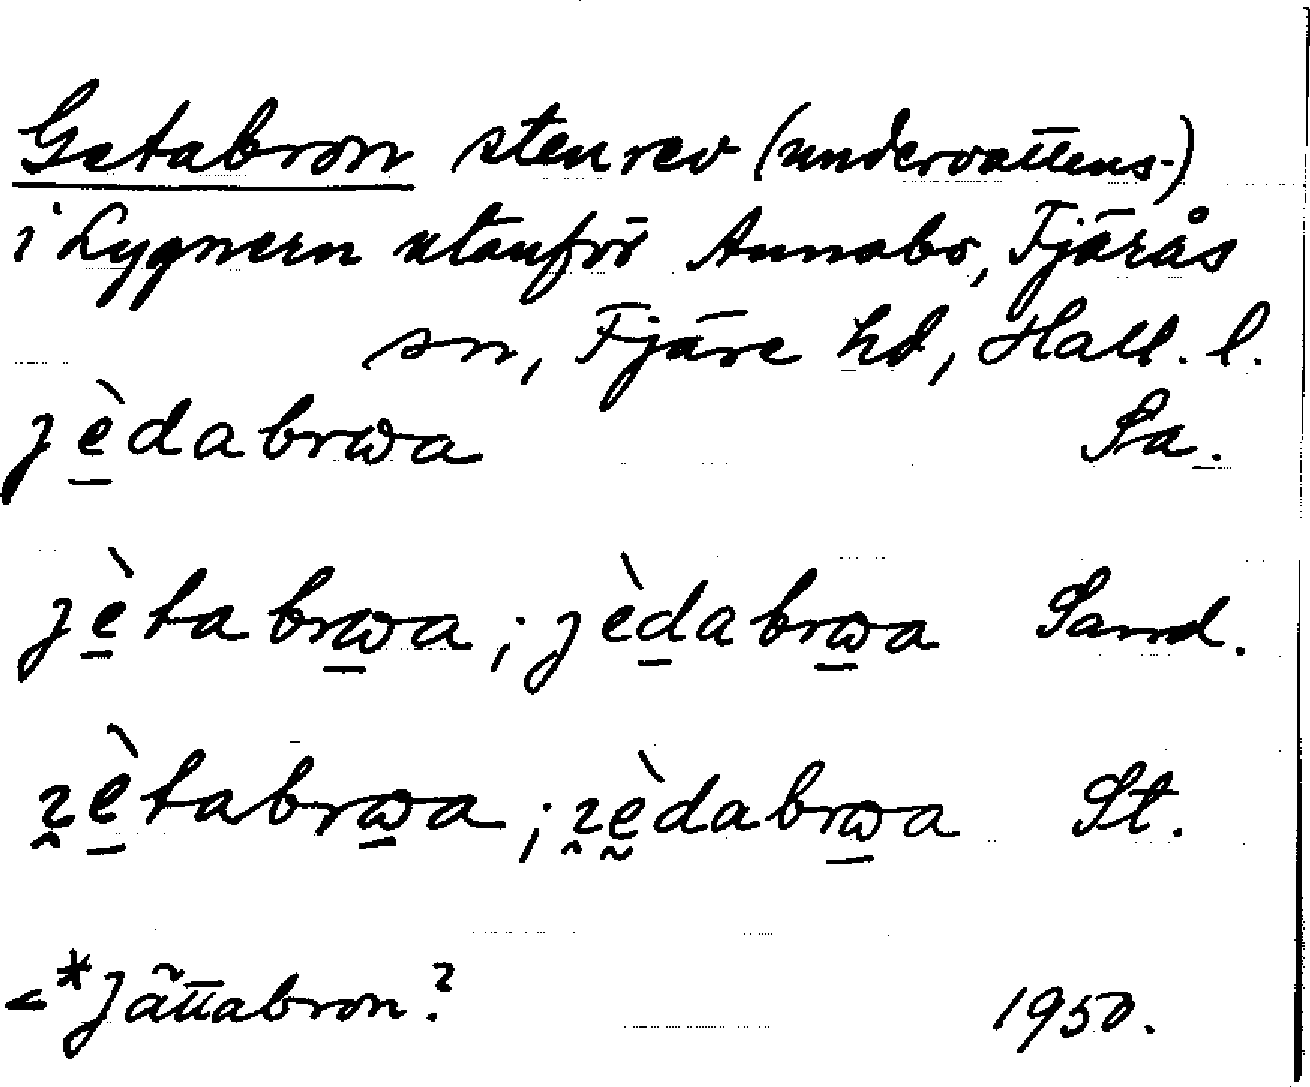 Getabron stenrev (undervattens-)
i Lygnern utanför Annabo, Fjärås
sn, Fjäre hd, Hall. l.
jèdabrωa Sa.
jètabrωa; jèdabrωa Sand.
ʐètabrωa; ʐèdabrωa St.
<*Jättabron? 1950.